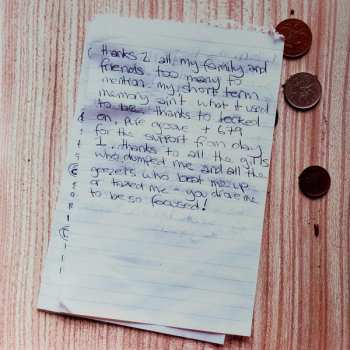 thanks 2 all my family and
friends. too many to
mention. my short term
memory ain't what it used
to be. thanks to locked
on, pure groove + 679
for the support from day
1. thanks to all the girls
who dumped me and all the
geezers who beat me up
or taxed me - you drove me
to be so focused!